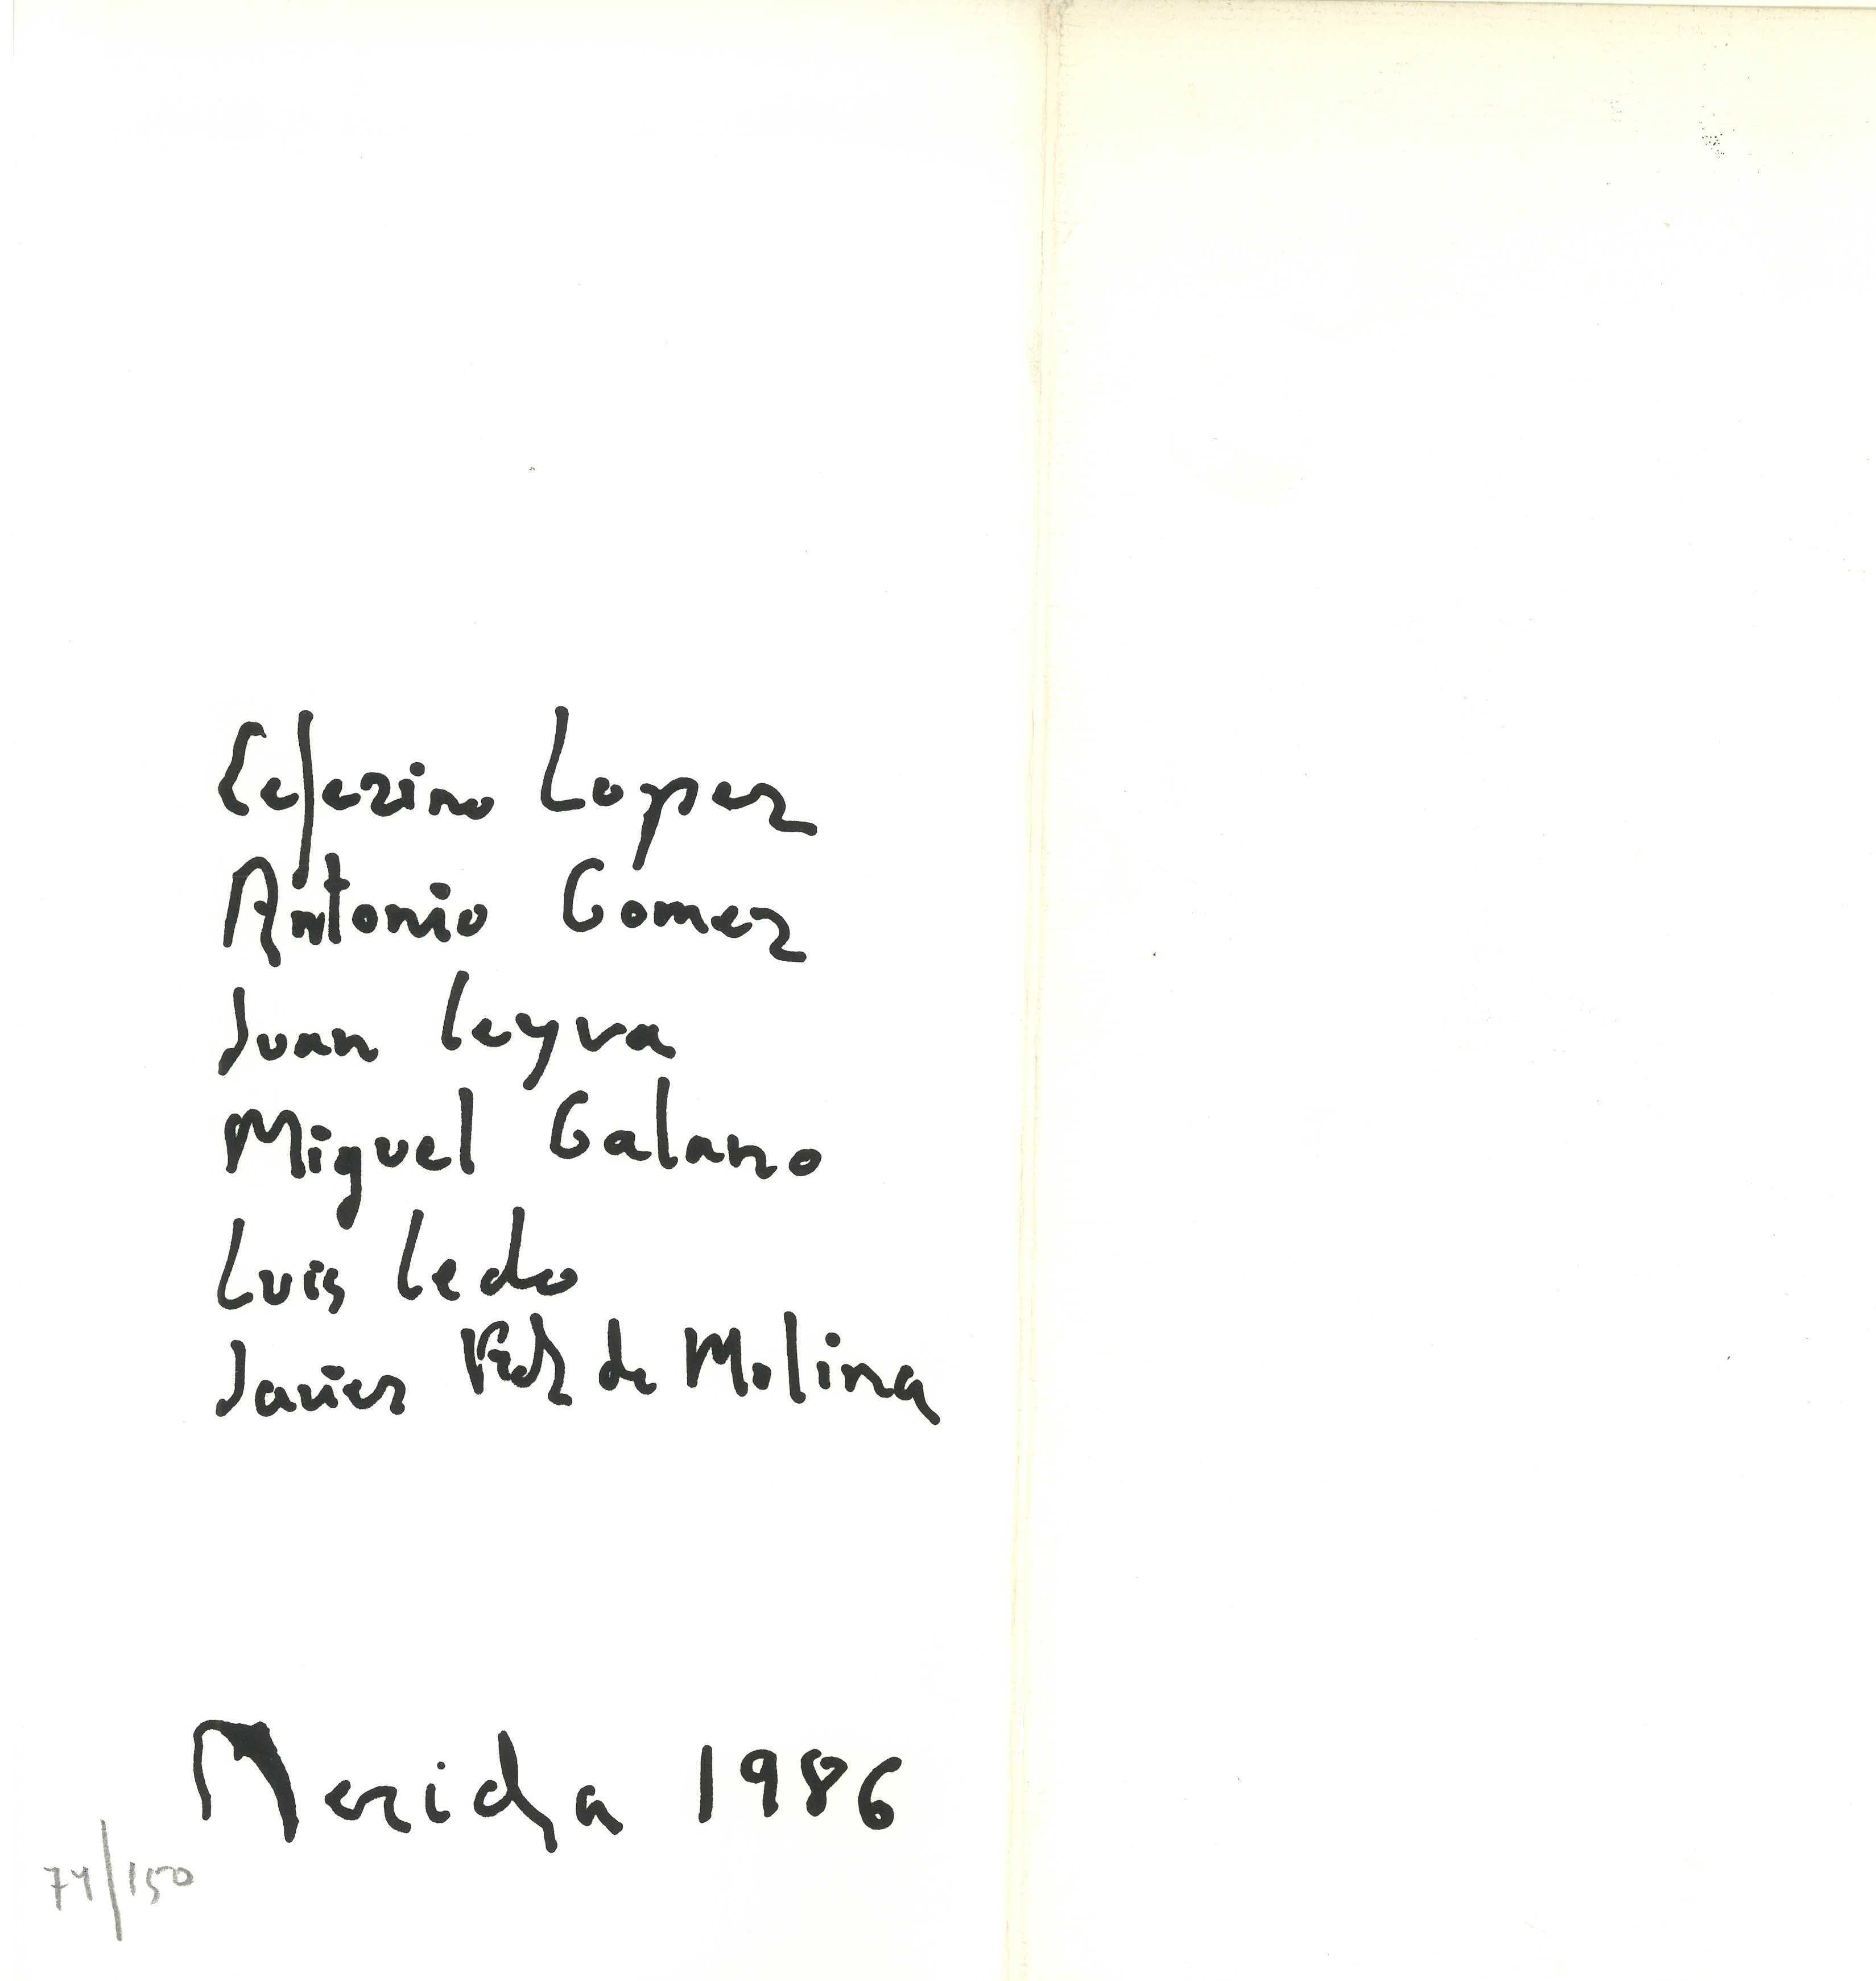 Ceferino Lopez
Antonio Gomez
Juan Leyva
Miguel Galano
Luis Ledo
Javier Fdez de Molina
Merida 1986
74/150